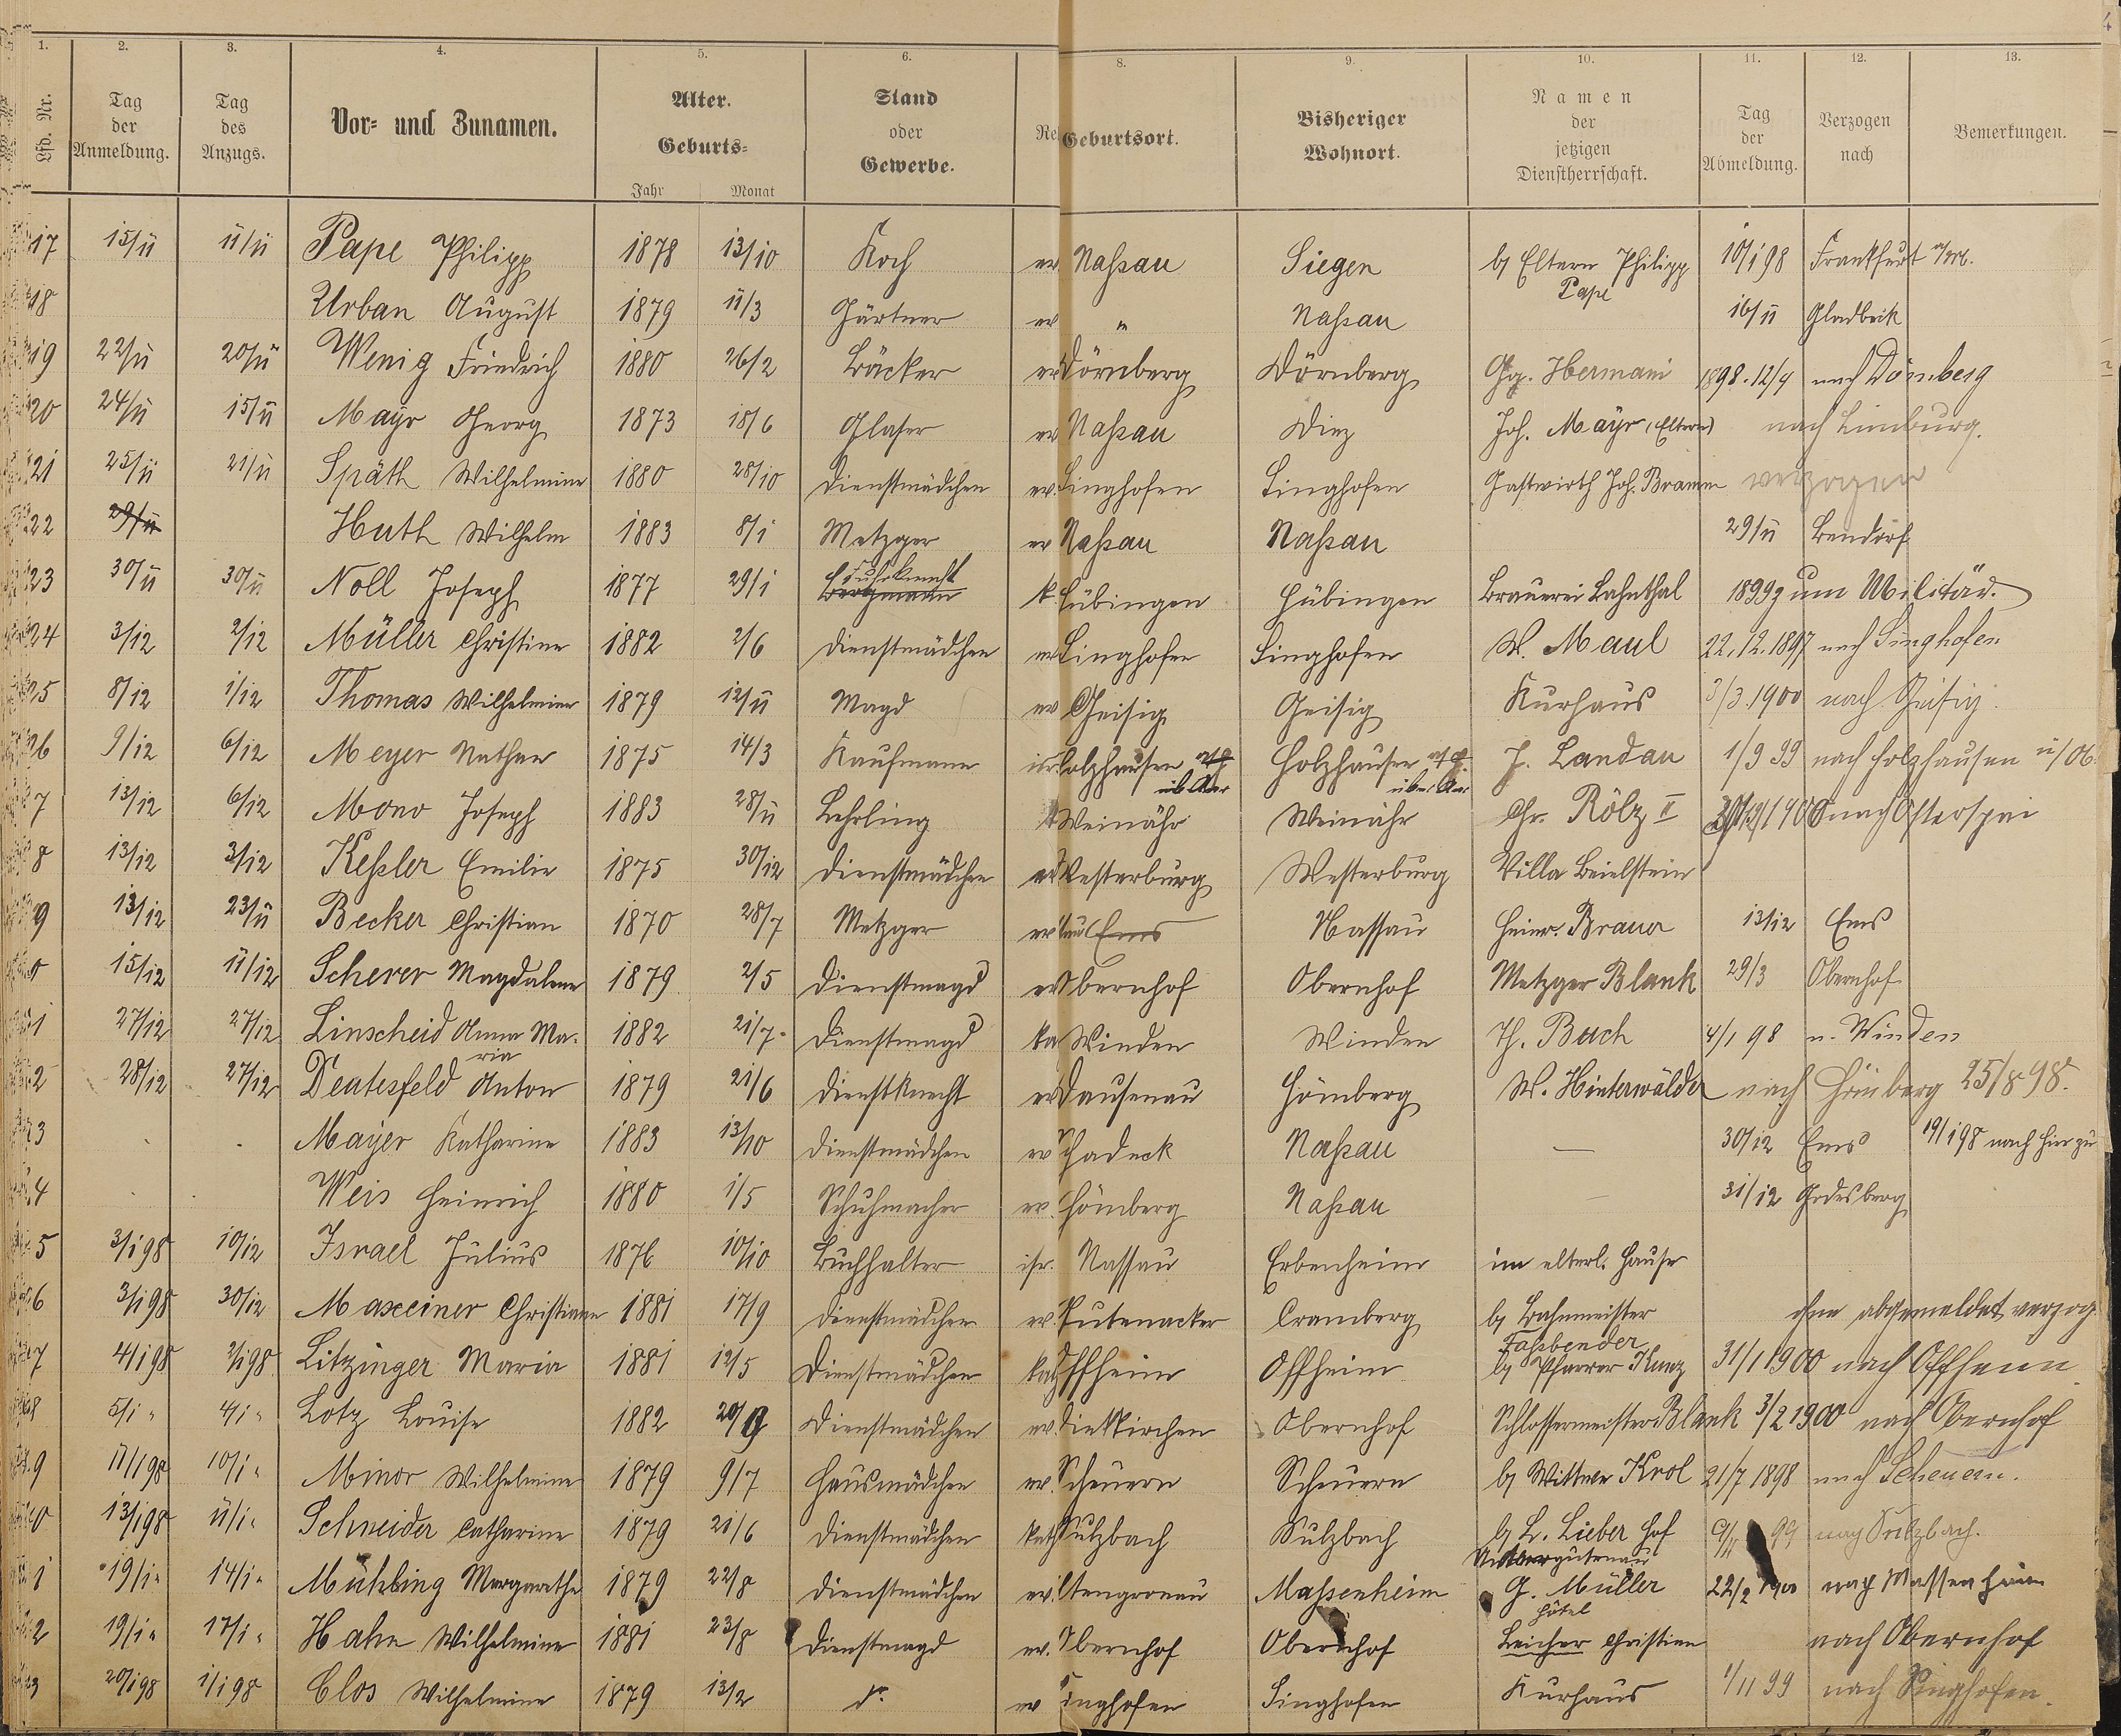 4
1. 2. 3. 4. 5. 6. 8. 9. 10. 11. 12. 13.
Lfd. Nr. Tag der Anmeldung. Tag des Anzugs. Vor- und Zunamen. Alter. Geburts- Jahr Monat Stand oder Gewerbe. Re Geburtsort. Bisheriger Wohnort. Namen der jetzigen Dienstherrschaft. Tag der Abmeldung. Verzogen nach Bemerkungen.
17 15/11 11/11 Pape Philipp 1878 13/10 Koch ev Naßau Siegen b/ Eltern Philipp Pape 10/1 98 Frankfurt a/M.
18 Urban August 1879 11/3 Gärtner ev " Naßau 16/11 Gladbeck
19 22/11 20/11 Wenig Friedrich 1880 26/2 Bäcker ev Dörnberg Dörnberg Gg. Hermani 1898. 12/4 nach Dörnberg
20 24/11 15/11 Mayr Georg 1873 18/6 Glaser ev Naßau Diez Joh. Mayr (Eltern) nach Limburg.
21 25/11 21/11 Späth Wilhelmine 1880 28/10 Dienstmädchen ev. Singhofen Singhofen Gastwirth Joh. Bramm verzogen
22 29/11 Huth Wilhelm 1883 8/1 Metzger ev Naßau Naßau 29/11 Bendorf
23 30/11 30/11 Noll Joseph 1877 29/1 Fuhrknecht k Hübingen Hübingen Brauerei Lahnthal 1899 zum Militär.
24 3/12 2/12 Müller Christine 1882 2/6 Dienstmädchen ev Singhofen Singhofen W. Maul 22.12.1897 nach Singhofen
25 8/12 1/12 Thomas Wilhelmine 1879 12/11 Magd ev Geisig Geisig Kurhaus 3/3.1900 nach Geisig.
26 9/12 6/12 Meyer Nathan 1875 14/3 Kaufmann isr Holzhausen üb. Aar Holzhausen über Aar J. Landau 1/9 99 nach Holzhausen
7 13/12 6/12 Mono Joseph 1883 28/11 Lehrling k Weinähr Weinähr Chr. Rölz II 1900 nach Osterspai
8 13/12 3/12 Keßler Emilie 1875 30/12 Dienstmädchen ev Westerburg Westerburg Villa Beielstein
9 13/12 23/11 Becker Christian 1870 28/7 Metzger ev Ems Nassau Heinr. Brauer 13/12 Ems
0 15/12 11/12 Scherer Magdalene 1879 2/5 Dienstmagd ev Obernhof Obernhof Metzger Blank 29/3 Obernhof
1 27/12 27/12 Linscheid Anna Maria 1882 21/7. Dienstmagd ka Winden Winden Th. Bach 4/1 98 n. Winden
2 28/12 27/12 Deatesfeld Anton 1879 21/6 Dienstknecht ev Dausenau Hömberg W. Hinterwälder nach Hömberg 25/8 98.
3 Mayer Katharine 1883 13/10 Dienstmädchen ev Schadeck Naßau — 30/12 Ems 19/1 98 nach hier zu
4 Weis Heinrich 1880 1/5 Schuhmacher ev. Hömberg Naßau — 31/12 Godesberg
5 3/1 98 10/12 Israel Julius 1876 10/10 Buchhalter isr. Nassau Erbenheim im elterl. Hause
6 3/1 98 30/12 Maxeiner Christiane 1881 17/9 Dienstmädchen ev. Gutenacker Cramberg b/ Bahnmeister Faßbender ohne abgemeldet verzog.
7 4/1 98 2/1 98 Litzinger Maria 1881 12/5 Dienstmädchen kath Offheim Offheim b/ Pfarrer Kunz 31/1 1900 nach Offheim
8 5/1 " 4/1 " Lotz Louise 1882 20/9 Dienstmädchen ev. Dietkirchen Obernhof Schlossermeister Blank 3/2 1900 nach Obernhof
9 11/1 98 10/1 " Minor Wilhelmine 1879 9/7 Hausmädchen ev. Scheuern Scheuern b/ Wittwe Krol 21/7 1898 nach Scheuern.
0 13/1 98 11/1 " Schneider Catharine 1879 21/6 Dienstmädchen kath Sulzbach Sulzbach b/ L. Lieber Hof 99 nach Sulzbach.
1 19/1 " 14/1 " Mühling Margarethe 1879 22/8 Dienstmädchen ev. Altengronau Maßenheim G. Müller Hôtel 22/2 1900 nach Massenheim
2 19/1 " 17/1 " Hahn Wilhelmine 1881 23/8 Dienstmagd ev. Obernhof Obernhof Leicher Christian nach Obernhof
3 20/1 98 1/1 98 Clos Wilhelmine 1879 13/2 do. ev Singhofen Singhofen Kurhaus 1/11 99 nach Singhofen.